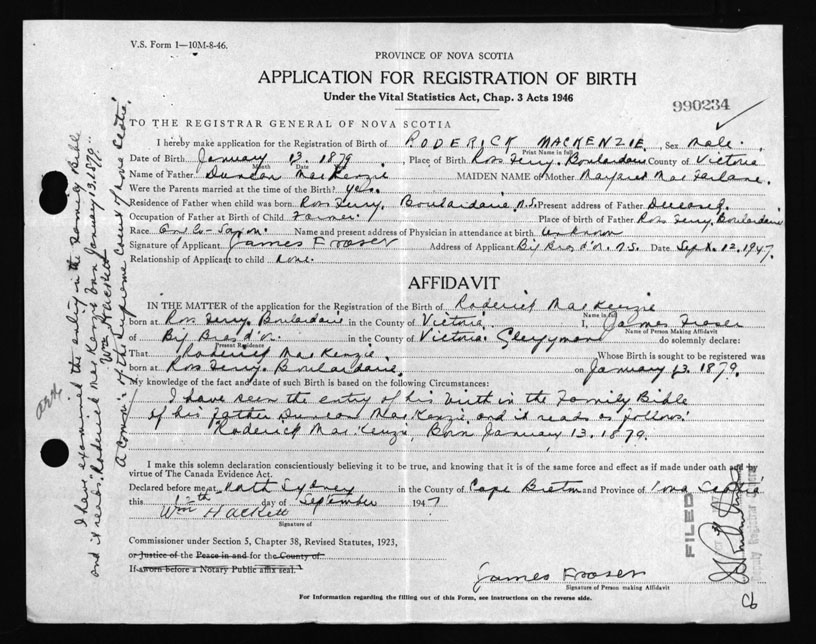 V.S. Form 1—10M-8-46.
PROVINCE OF NOVA SCOTIA
APPLICATION FOR REGISTRATION OF BIRTH
Under the Vital Statistics Act, Chap. 3 Acts 1946
990234
TO THE REGISTRAR GENERAL OF NOVA SCOTIA
I hereby make application for the Registration of Birth of RODERICK MACKENZIE. Sex Male.
Print Name in full
Date of Birth January 13. 1879, Place of Birth Ross Ferry. Boulardarie County of Victoria
Month Day
Name of Father Duncan MacKenzie MAIDEN NAME of Mother Margaret MacFarlane.
Were the Parents married at the time of the Birth? Yes.
Residence of Father when child was born Ross Ferry, Boulardarie, N.S. Present address of Father Deceased.
Occupation of Father at Birth of Child Farmer. Place of birth of Father Ross Ferry, Boulardarie
Race Anglo-Saxon. Name and present address of Physician in attendance at birth Unknown
Signature of Applicant James Fraser Address of Applicant Big Bras d'or. N.S. Date Sept. 12. 1947.
Relationship of Applicant to child none.
AFFIDAVIT
IN THE MATTER of the application for the Registration of the Birth of Roderick MacKenzie
Name in full
born at Ross Ferry. Boulardarie in the County of Victoria. I, James Fraser
Name of Person Making Affidavit
of Big Bras d'or. in the County of Victoria. Clergyman do solemnly declare:
Present Residence
That Roderick MacKenzie. Whose Birth is sought to be registered was
born at Ross Ferry. Boulardarie. on January 13. 1879.
My knowledge of the fact and date of such Birth is based on the following Circumstances:
I have seen the entry of his birth in the Family Bible
of his father Duncan MacKenzie. and it reads as follows:
"Roderick MacKenzie, Born January 13. 1879.
I make this solemn declaration conscientiously believing it to be true, and knowing that it is of the same force and effect as if made under oath and by
virtue of The Canada Evidence Act.
Declared before me, at North Sydney in the County of Cape Breton and Province of Nova Scotia
this 12th day of September 1947
Wm Hackett
Signature of
Commissioner under Section 5, Chapter 38, Revised Statutes, 1923,
or Justice of the Peace in and for the County of
If sworn before a Notary Public affix seal.
James Fraser
Signature of Person making Affidavit
For Information regarding the filling out of this Form, see instructions on the reverse side.
I have examined the entry in the Family Bible
and it reads "Roderick MacKenzie born January 13. 1879."
Wm Hackett
A Commr. of the Supreme Court of Nova Scotia.
FILED